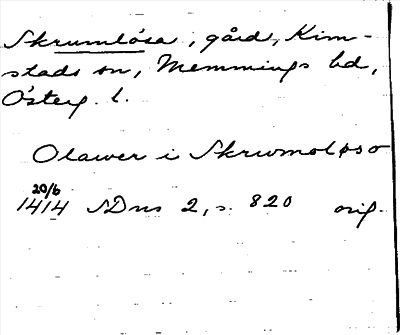 Skrumlösa, gård, Kim-
stads sn, Memmings hd,
Österg. l.
Olawer i Skrwmoløso
20/6
1414 SDns 2, s. 820 orig.